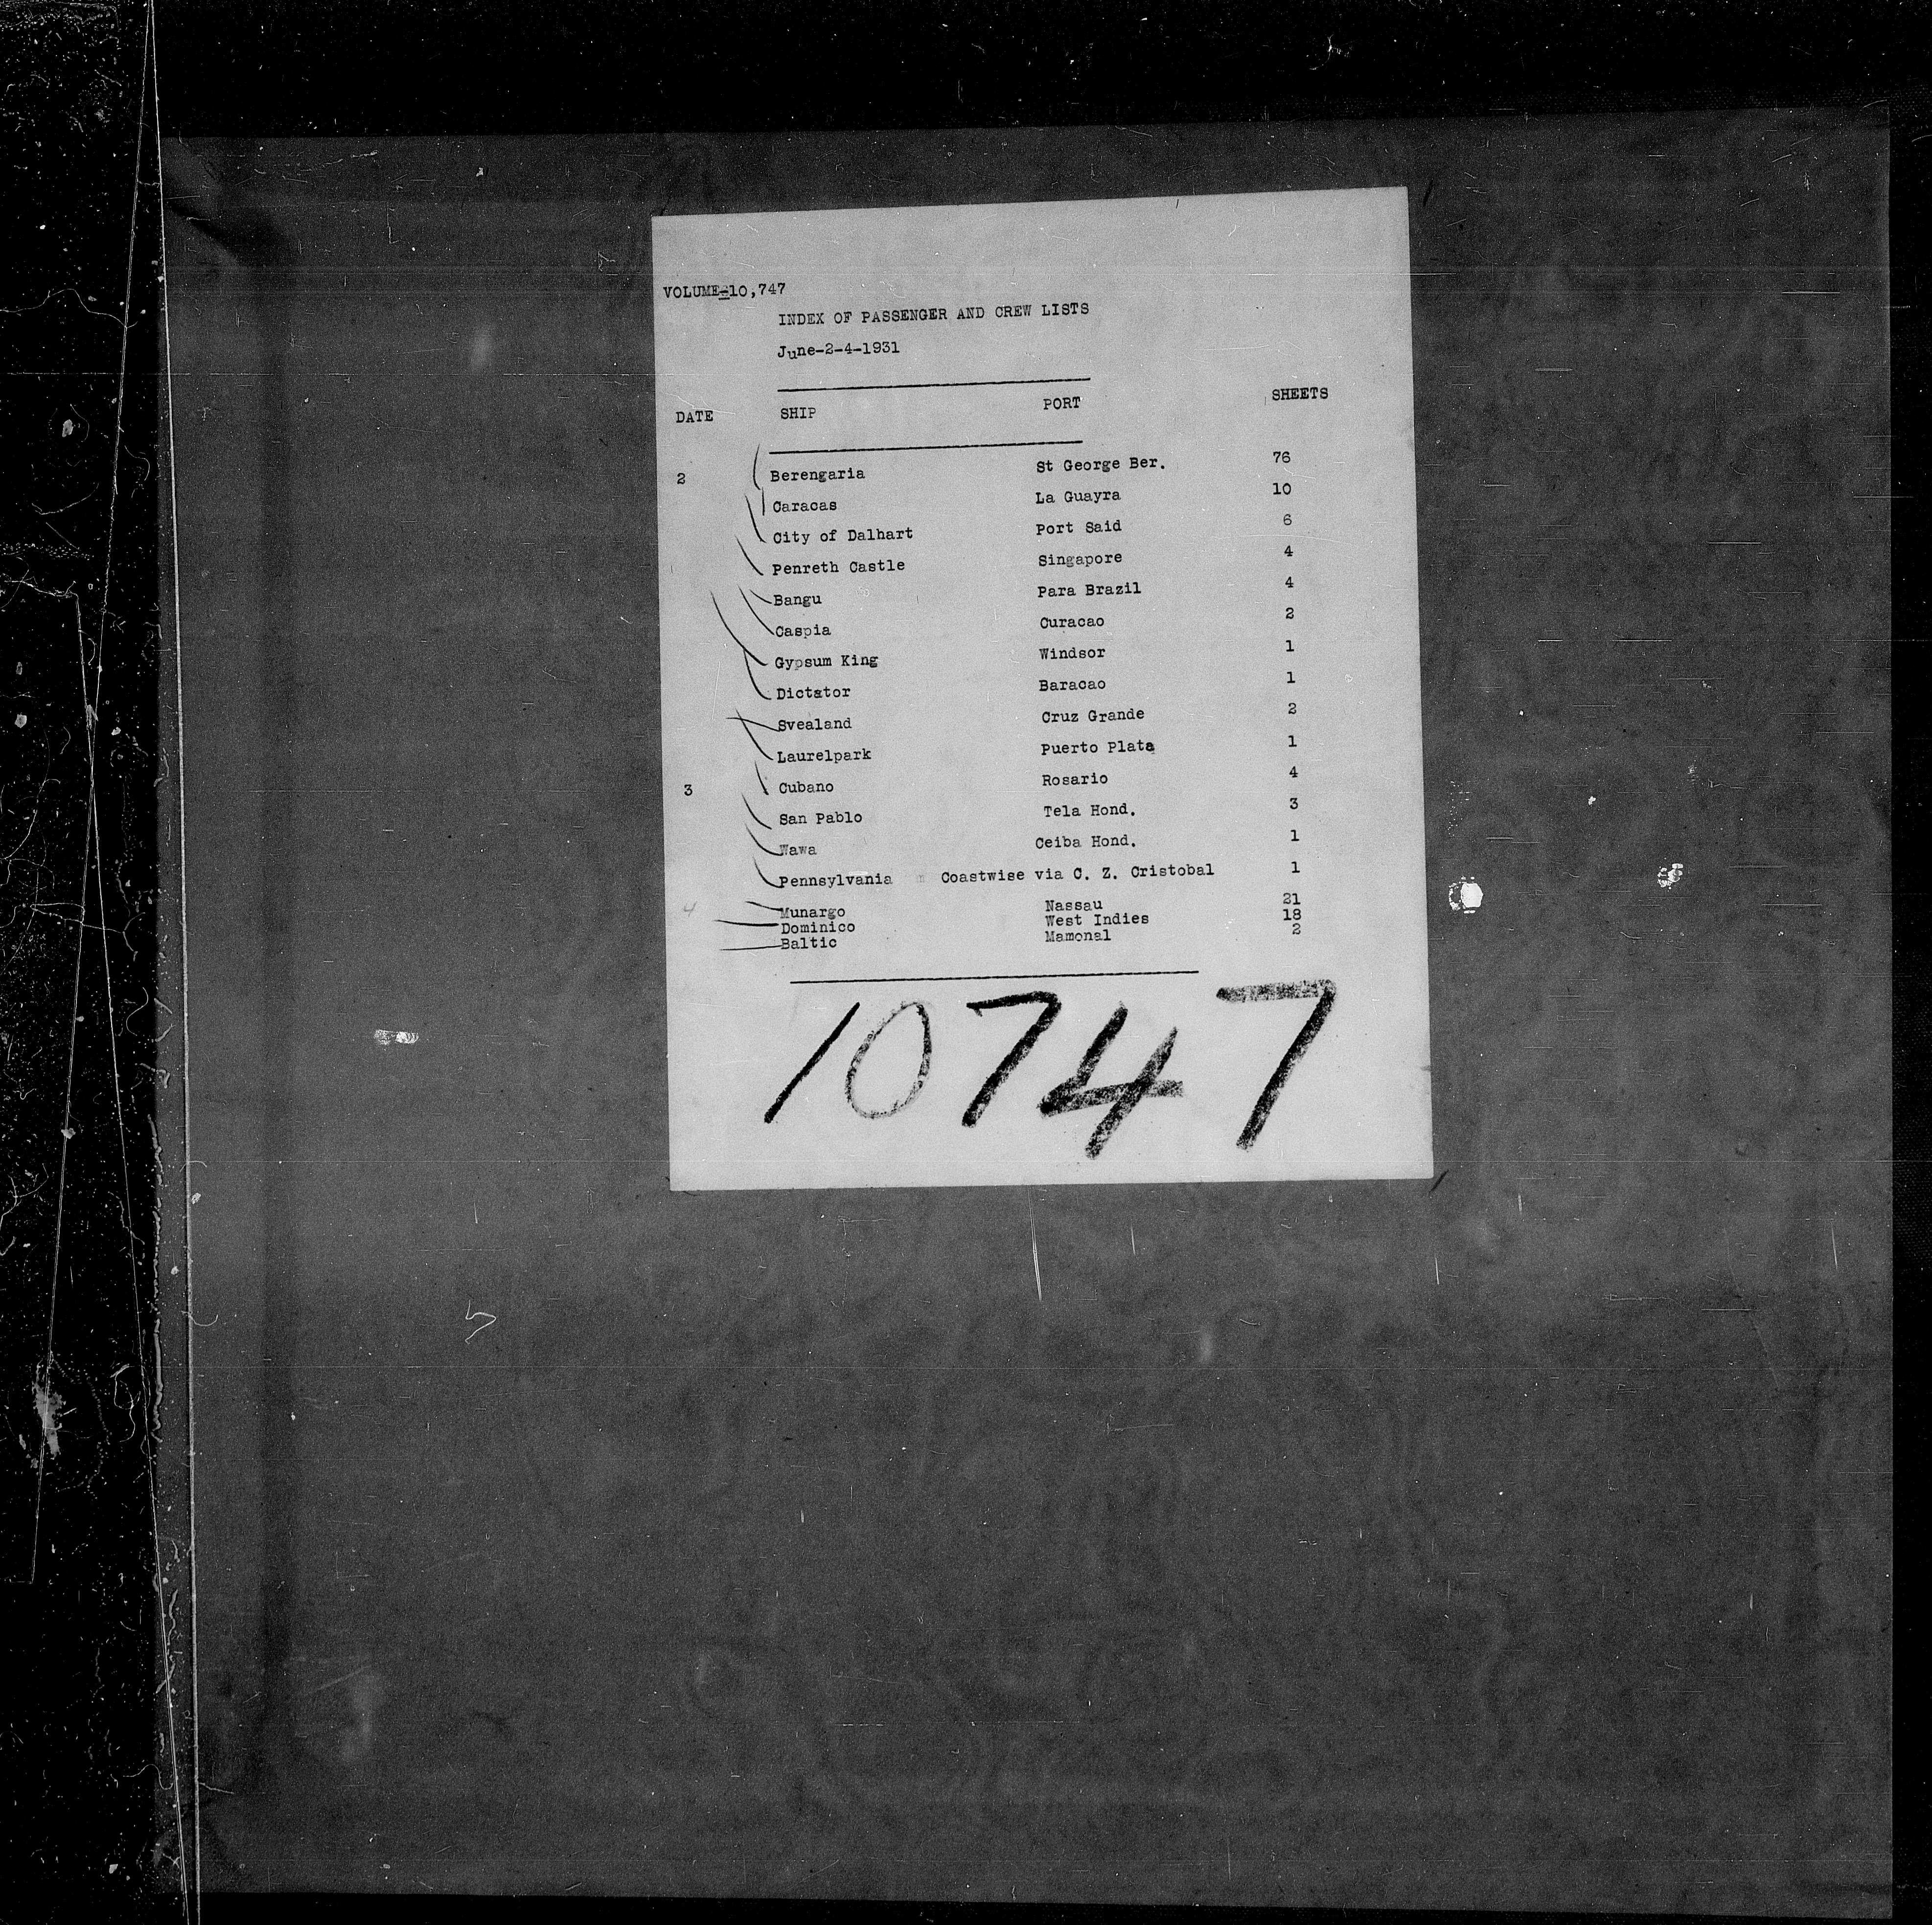 VOLUME-10,747
INDEX OF PASSENGER AND CREW LISTS
June-2-4-1931
DATE SHIP PORT SHEETS
2 Berengaria St George Ber. 76
Caracas La Guayra 10
City of Dalhart Port Said 6
Penreth Castle Singapore 4
Bangu Para Brazil 4
Caspia Curacao 2
Gypsum King Windsor 1
Dictator Baracao 1
Svealand Cruz Grande 2
Laurelpark Puerto Plata 1
3 Cubano Rosario 4
San Pablo Tela Hond. 3
Wawa Ceiba Hond. 1
Pennsylvania Coastwise via C. Z. Cristobal 1
4 Munargo Nassau 21
Dominico West Indies 18
Baltic Mamonal 2
10747